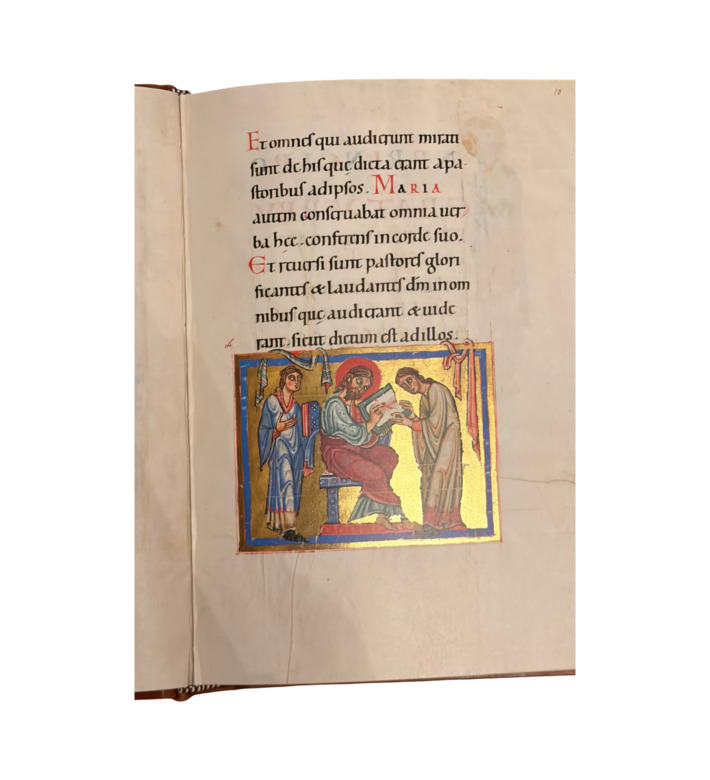 10
Et omnes qui audierunt mirati
sunt de his quę dicta erant a pa-
storibus ad ipsos. MARIA
autem conseruabat omnia uer
ba hęc. conferens in corde suo.
Et reuersi sunt pastores glori
ficantes & laudantes dm in om
nibus quę audierant & uide
rant. sicut dictum est ad illos.